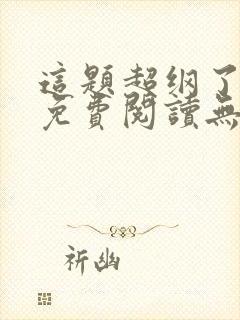 這題超纲了
免費閱讀無
祈幽